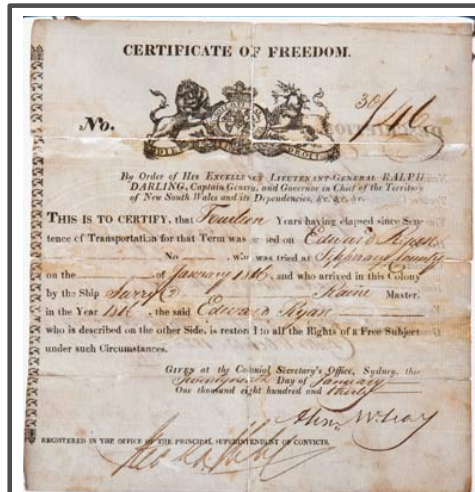 CERTIFICATE OF FREEDOM.
No. 30/46
DIEU ET MON DROIT
By Order of HIS EXCELLENCY LIEUTENANT-GENERAL RALPH
DARLING, Captain General and Governor in Chief of the Territory
of New South Wales and its Dependencies, &c. &c. &c.
THIS IS TO CERTIFY, that Fourteen Years having elapsed since Sen-
tence of Transportation for that Term was passed on Edward Ryan
No who was tried at Tipperary County
on the of January 1816, and who arrived in this Colony
by the Ship Surry Raine Master,
in the Year 1816, the said Edward Ryan
who is described on the other Side, is restored to all the Rights of a Free Subject
under such Circumstances.
GIVEN at the Colonial Secretary's Office, Sydney, this
Day of January
One thousand eight hundred and thirty
REGISTERED IN THE OFFICE OF THE PRINCIPAL SUPERINTENDENT OF CONVICTS.